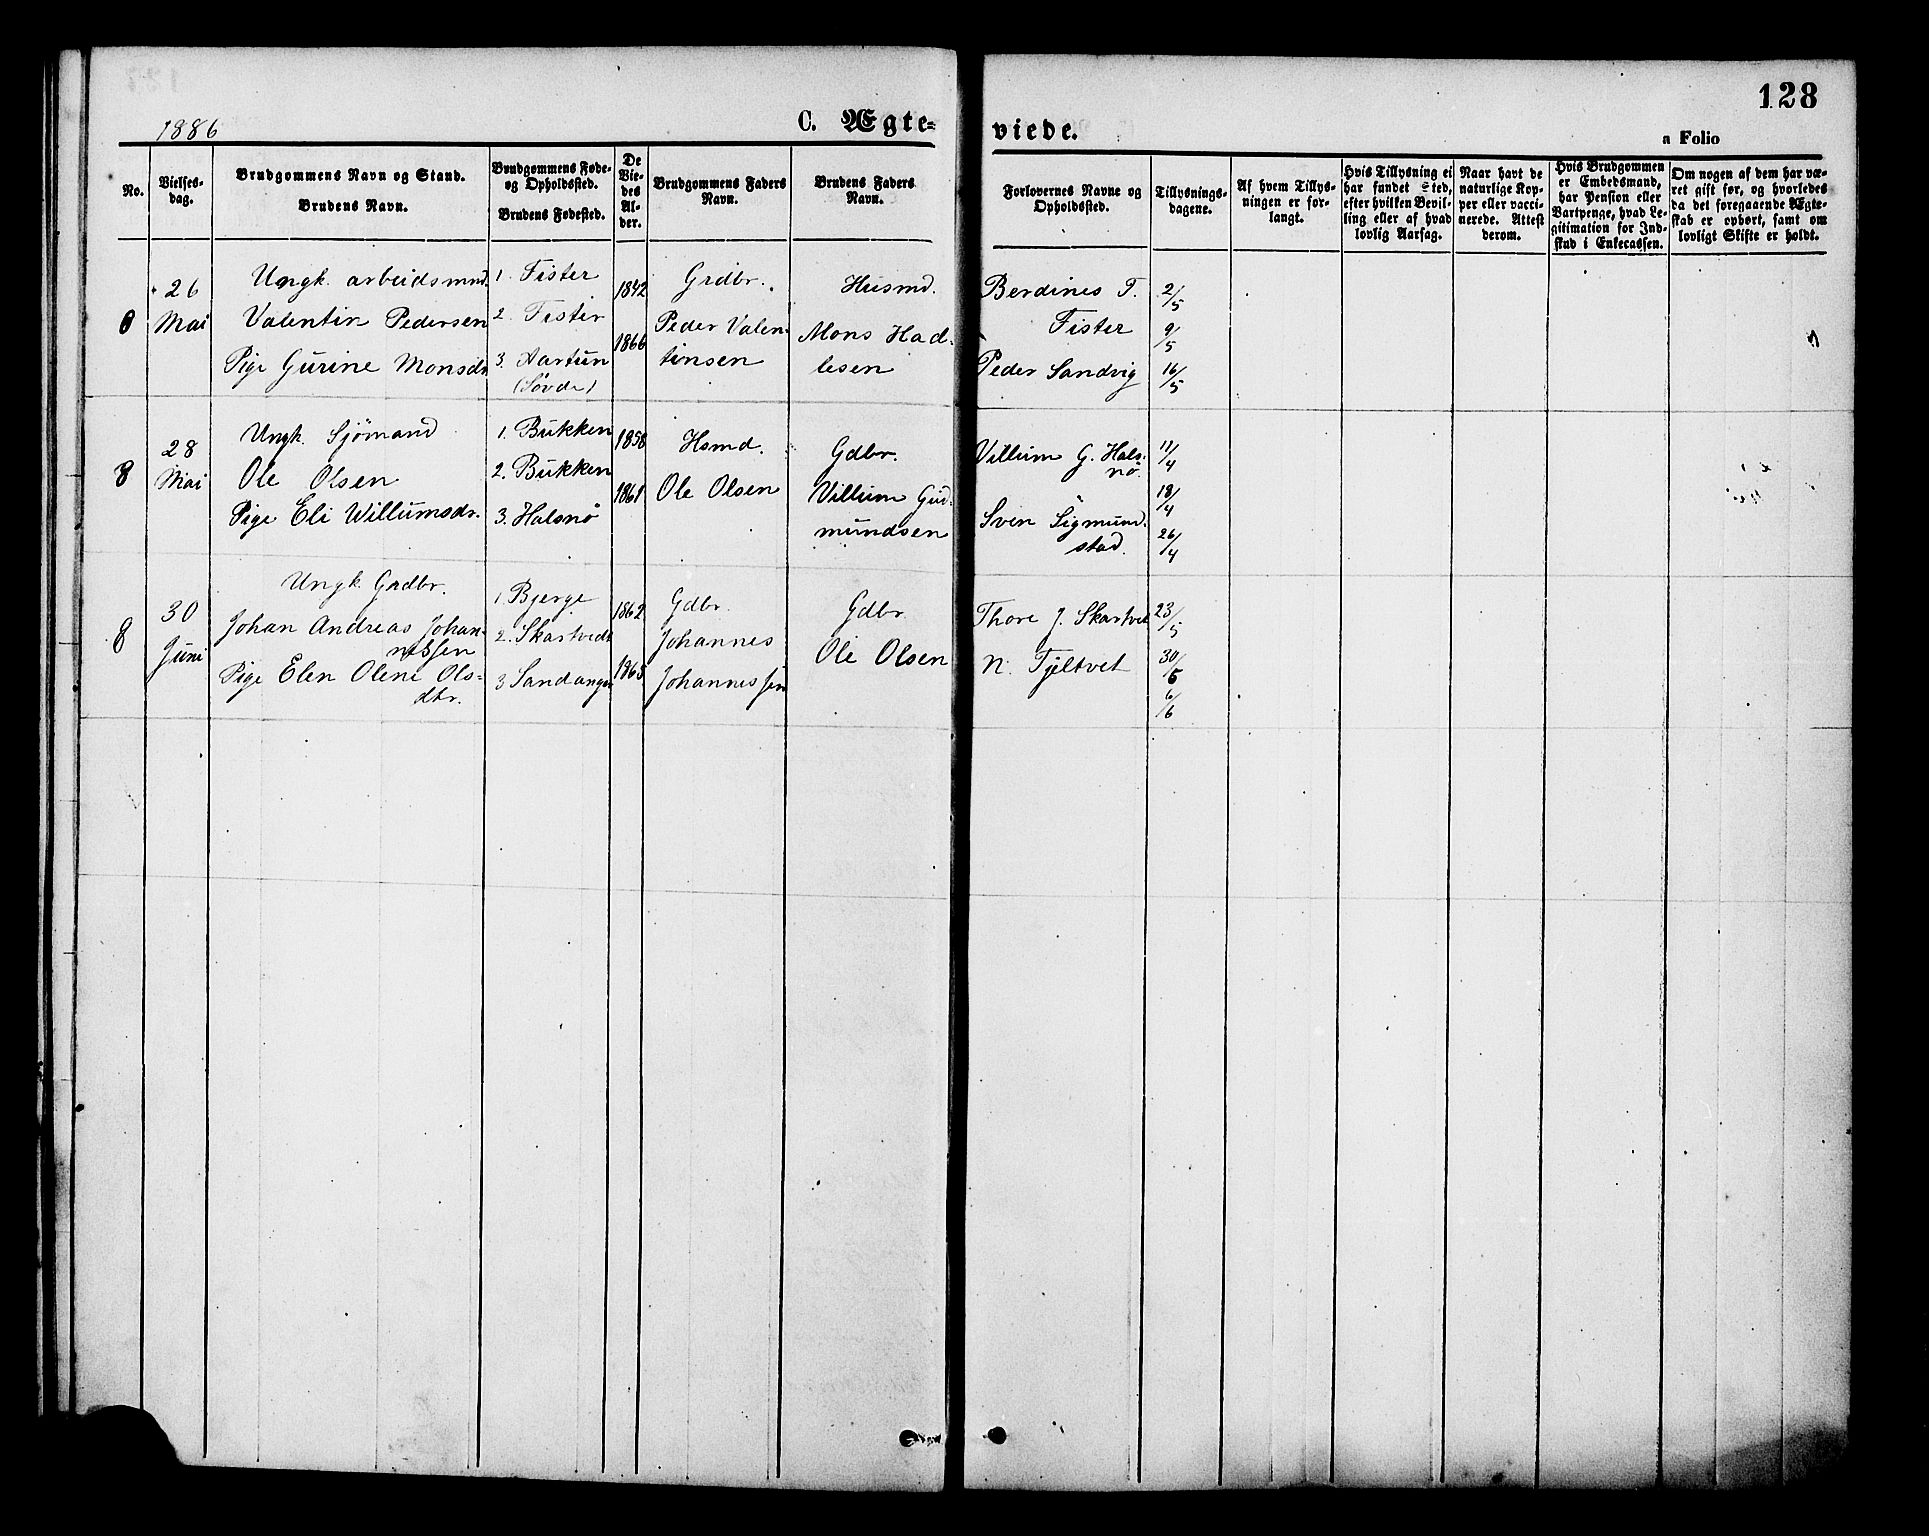 1886
C. Ægte-
viede.
128
a Folio
No.
Vielses-
dag.
Brudgommens Navn og Stand.
Brudens Navn.
Brudgommens Føde-
og Opholdssted.
Brudens Fødested.
De
Vie-
des
Al-
der.
Brudgommens Faders
Navn.
Brudens Faders
Navn.
Forlovernes Navne og
Opholdssted.
Tillysnings-
dagene.
Af hvem Tillys-
ningen er for-
langt.
Hvis Tillysning ei
har fundet Sted,
efter hvilken Bevil-
ling eller af hvad
lovlig Aarsag.
Naar havt de
naturlige Kop-
per eller vacci-
nerede. Attest
derom.
Hvis Brudgommen
er Embedsmand,
har Pension eller
Vartpenge, hvad Le-
gitimation for Ind-
skud i Enkecassen.
Om nogen af dem har væ-
ret gift før, og hvorledes
da det foregaaende Ægte-
skab er ophørt, samt om
lovligt Skifte er holdt.
26
Mai
Ungk. arbeidsmnd.
Valentin Pedersen
Pige Gurine Monsdr
1. Fister
2. Fister
3. Aartun
(Søvde)
1842
1866
Grdbr.
Peder Valen-
tinsen
Husmd.
Mons Had-
lesen
Berdines T.
Fister
Peder Sandvig
2/5
9/5
16/5
8
28
Mai
Ungk. Sjömand
Ole Olsen
Pige Eli Willumsdr.
1. Bukken
2. Bukken
3. Halsnö
1858
1861
Hsmd.
Ole Olsen
Gdbr.
Villum Gud-
mundsen
Villum G. Hals-
nö
Sven Sigmund-
stad.
11/4
18/4
26/4
8
30
Juni
Ungk. Grdbr.
Johan Andreas Johan-
nessen
Pige Elen Olene Ols-
dtr.
1. Bjerge
2. Skartvedt
3 Sandanger
1862
1865
Gdbr.
Johannes
Johannessen
Gdbr
Ole Olsen
Thore J. Skartvet
N. Tjeltvet
23/5
30/5
6/6